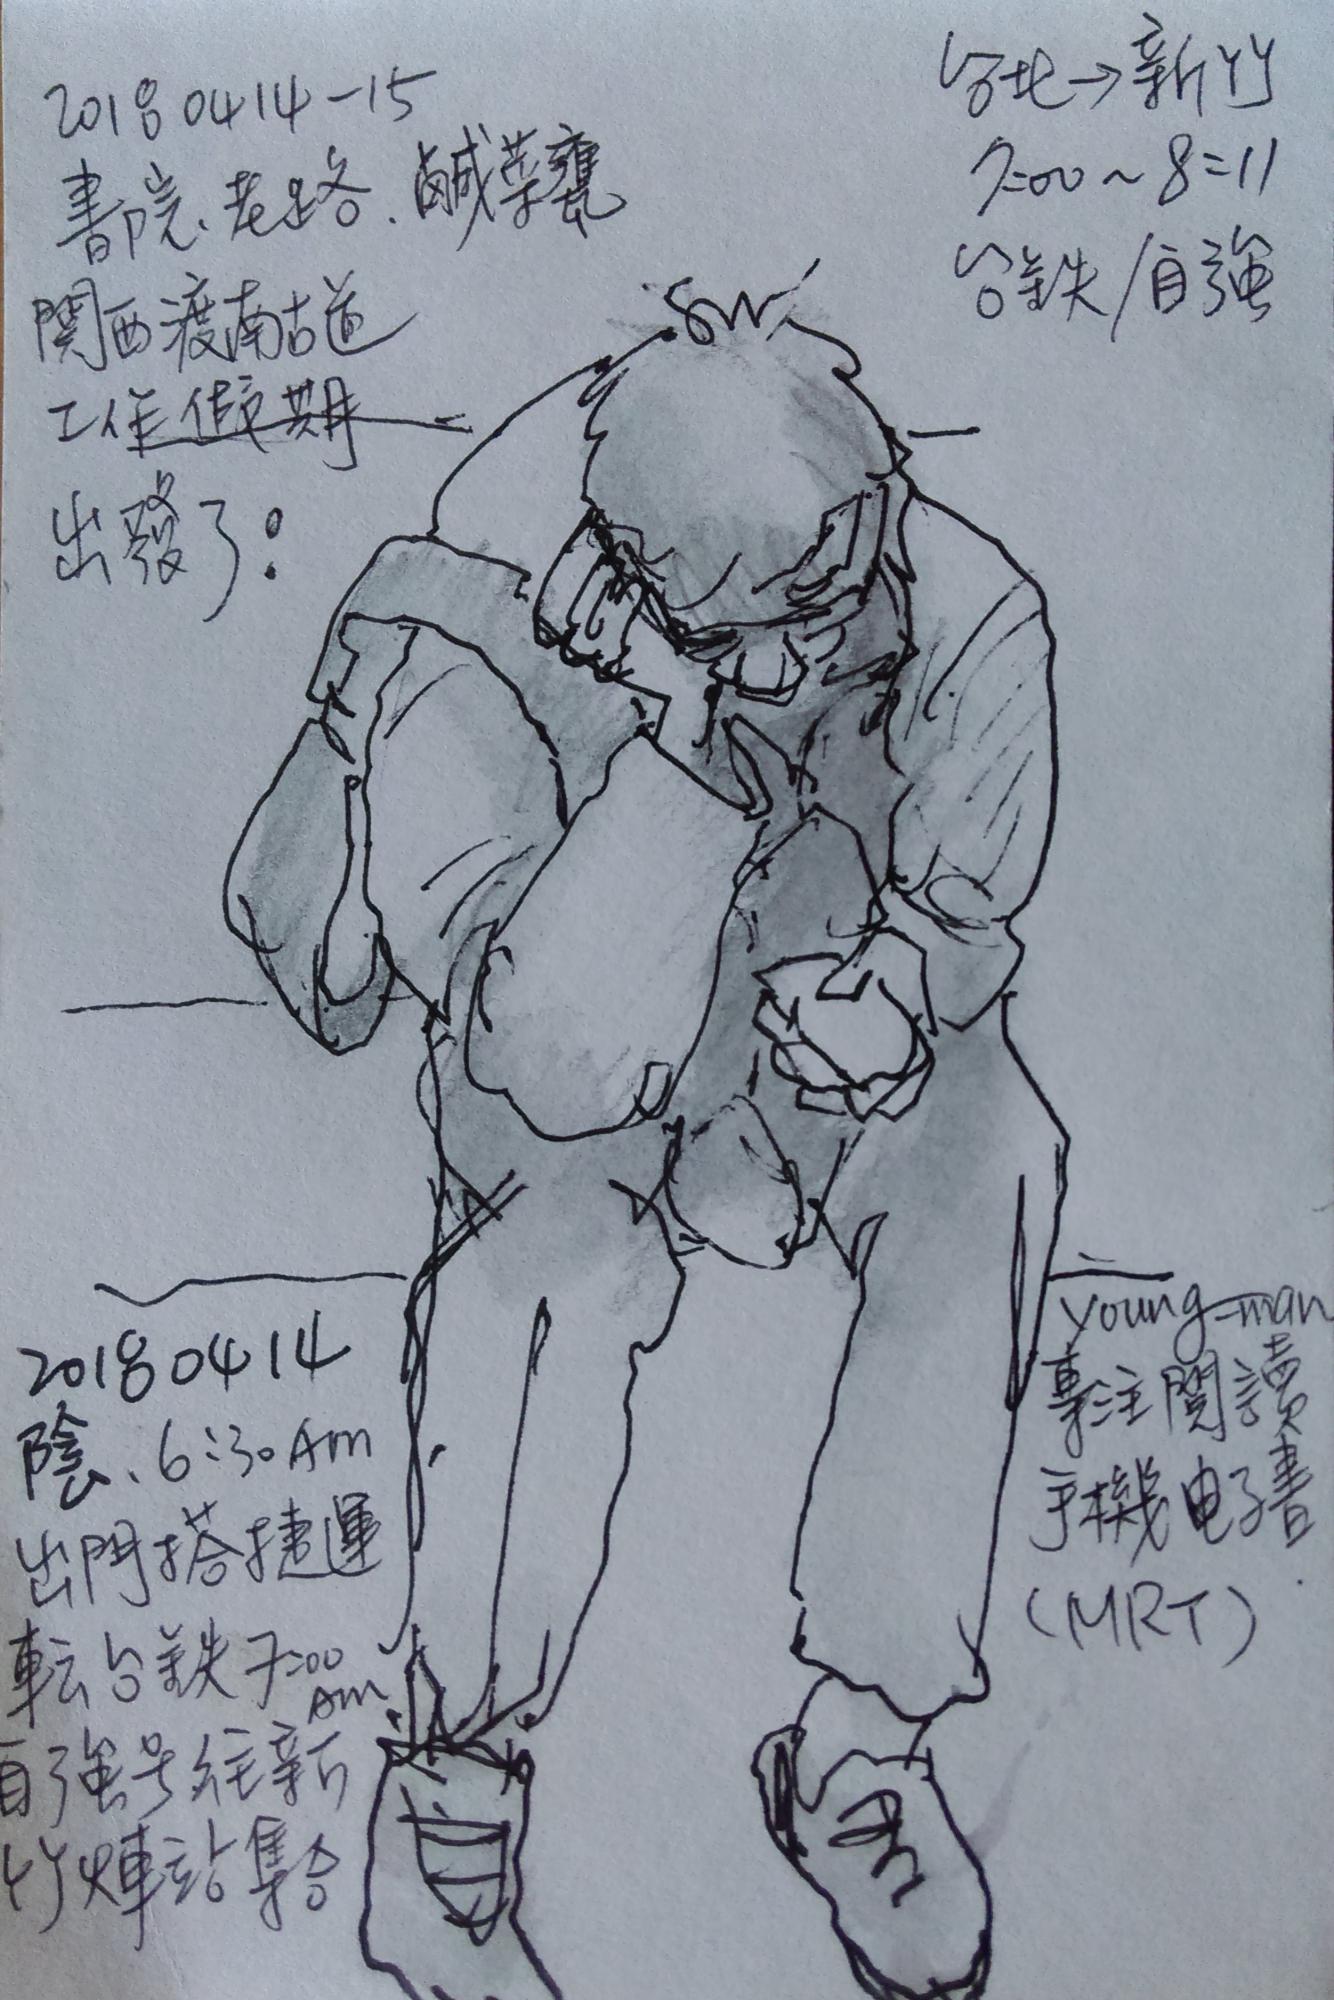 20180414-15
書院、老路、鹹菜甕
関西渡南古道
工作假期
出發了:
台北→新竹
7:00~8:11
台鉄/自強
20180414
陰、6:30Am
出門搭捷運
転台鉄7:00
Am
自強号往新
竹煇站集合
young-man
專注閱讀
手機电子書
(MRT)